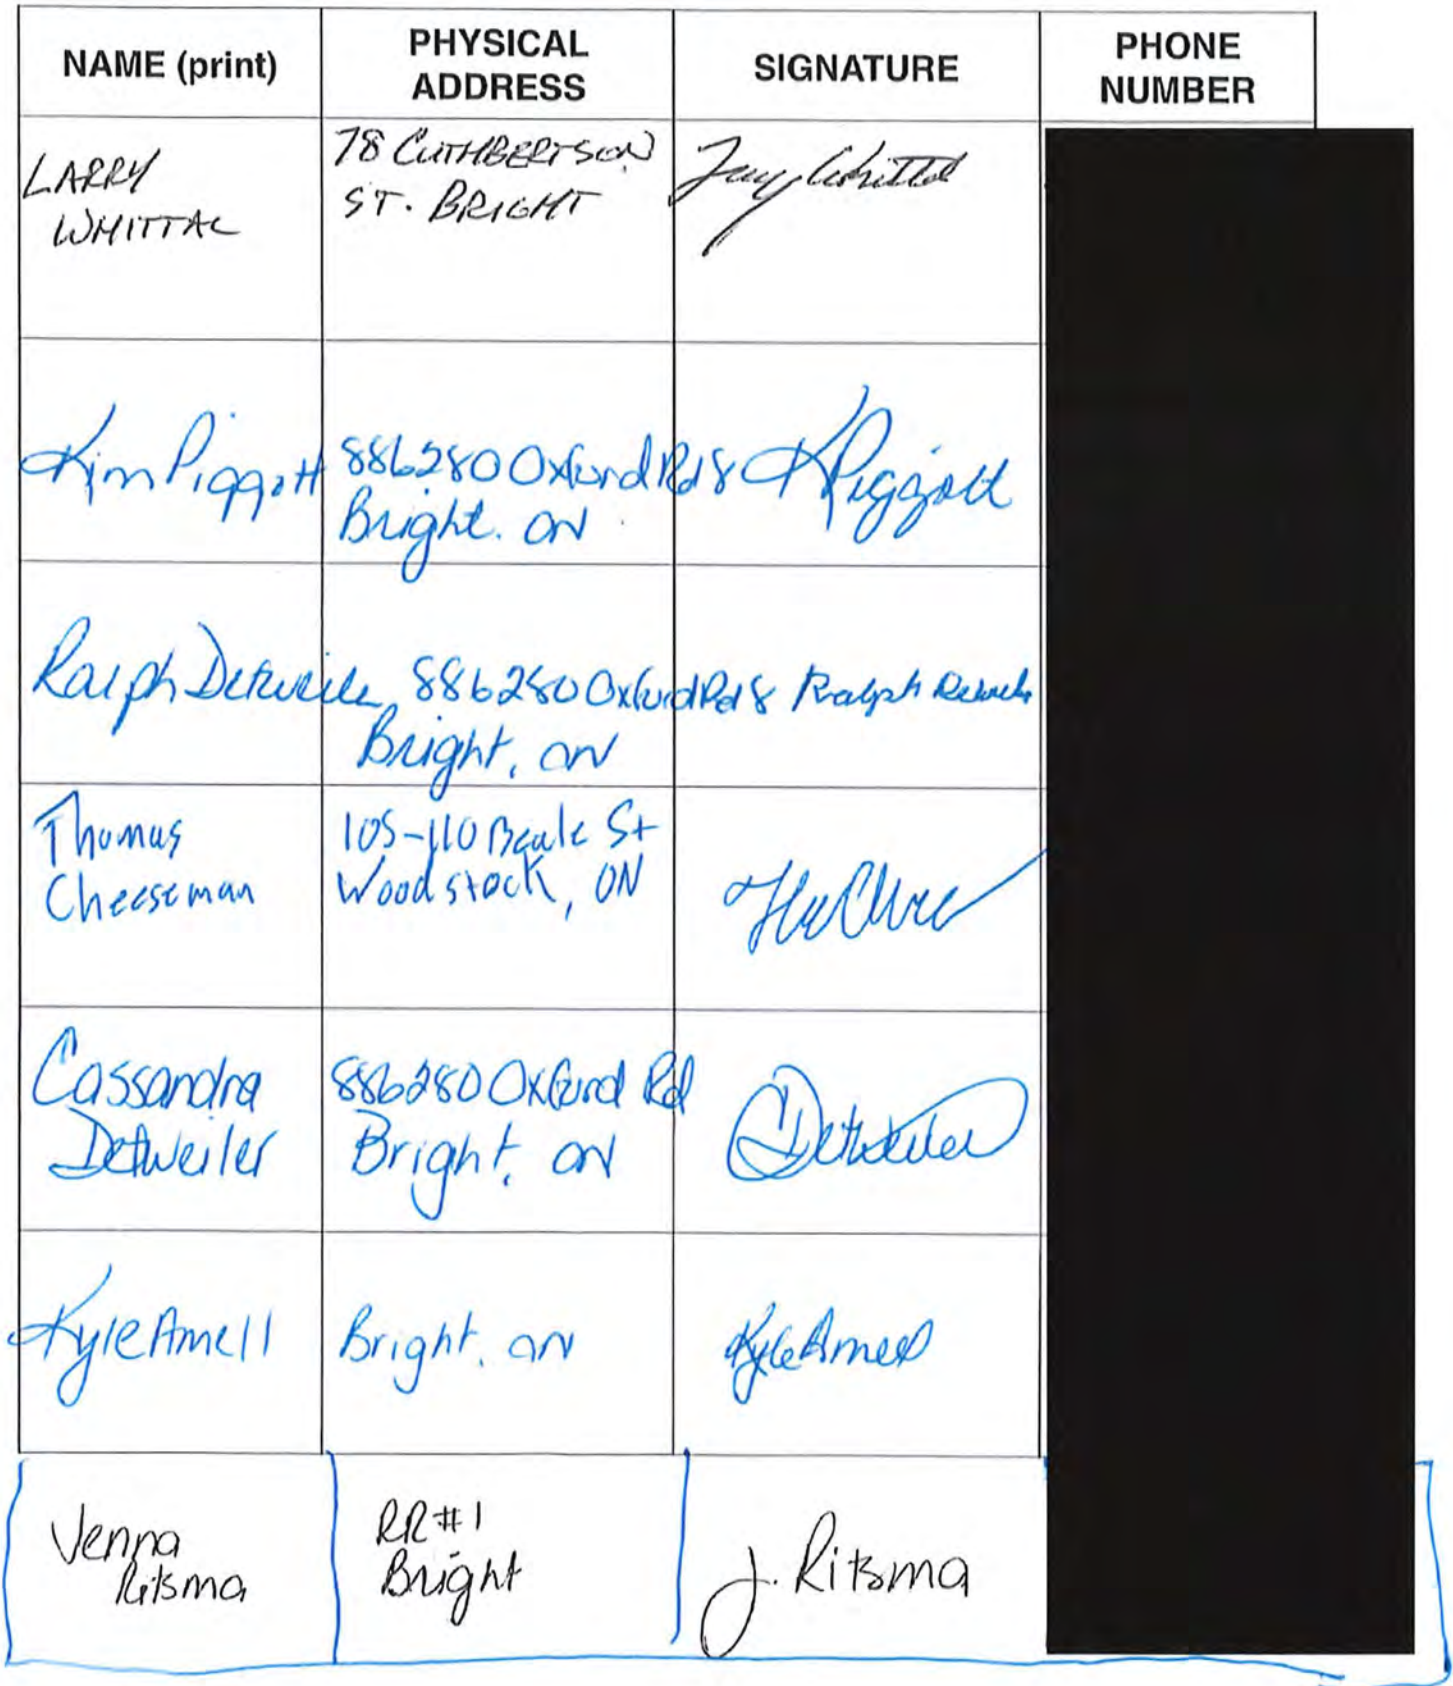 NAME (print)
PHYSICAL
ADDRESS
SIGNATURE
PHONE
NUMBER
LARRY
WHITTAL
78 CUTHBERTSON
ST. BRIGHT
Kim Piggott
886280 Oxford Rd 8
Bright. ON
KPiggott
Ralph Detweiler
886280 Oxford Rd 8
Bright, ON
Ralph
Thomas
Cheeseman
105-110 Beale St
Woodstock, ON
Cassandra
Detweiler
886280 Oxford Rd
Bright, ON
CDetweiler
Kyle Amell
Bright. ON
Kyle Amell
Jenna
Ritsma
RR#1
Bright
J. Ritsma